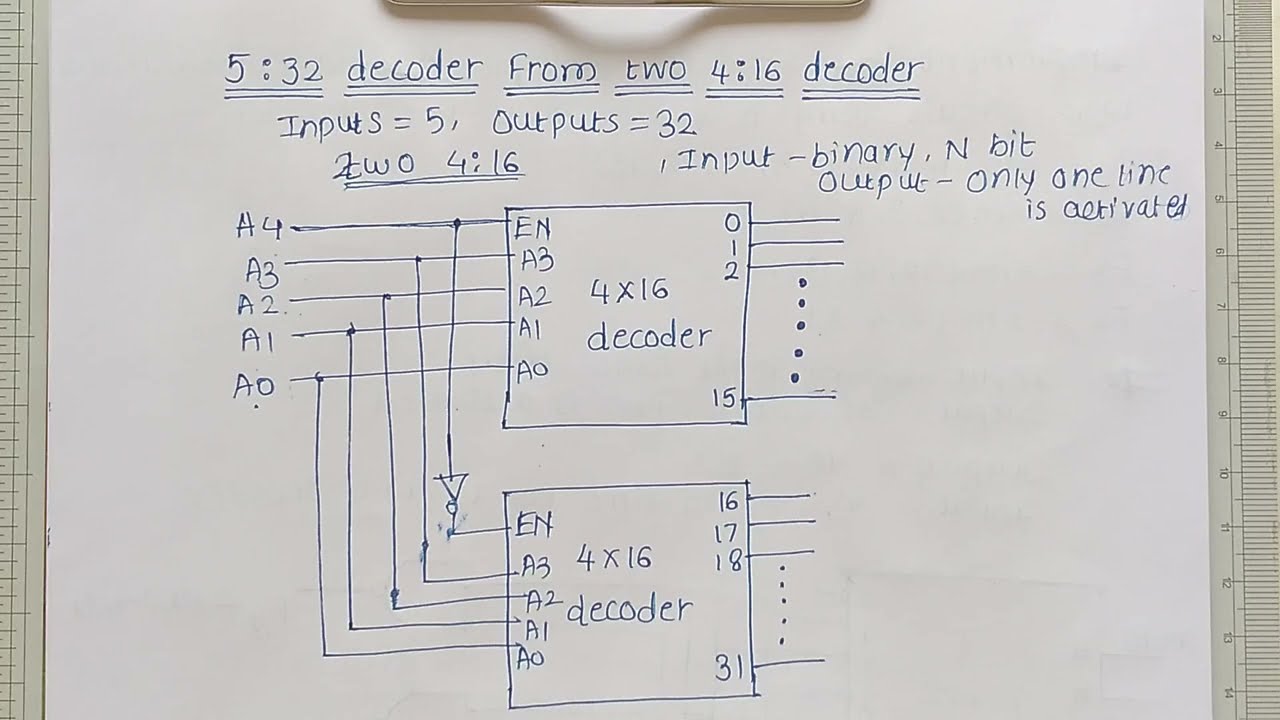 5:32 decoder From two 4:16 decoder
Inputs = 5, Outputs = 32
two 4:16
, Input - binary, N bit
Output - Only one line
is activated
A4
A3
A2.
A1
A0
EN
A3
A2
A1
A0
4x16
decoder
0
1
2
15
EN
A3
A2
A1
A0
4x16
decoder
16
17
18
31
2
3
4
5
6
7
8
9
10
11
12
13
14